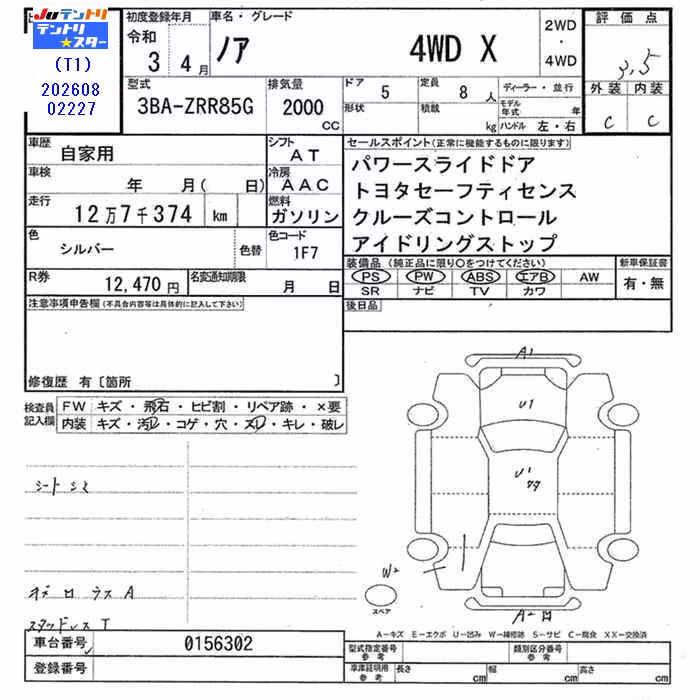 JUテントリ
テントリ★スター
(T1)
202608
02227
初度登録年月
令和
3 4月
車名・グレード
ノア 4WD X
2WD
・
4WD
評価点
3.5
外装 内装
C C
型式
3BA-ZRR85G
排気量
2000
CC
ドア
5
形状
定員
8 人
積載
kg
ディーラー・並行
モデル年式 年
ハンドル 左・右
車歴
自家用
シフト
AT
車検
年 月( 日)
冷房
AAC
走行
12万7千374 km
燃料
ガソリン
色
シルバー
色替
色コード
1F7
R券
12,470 円
名変通知期限
月 日
セールスポイント(正常に機能するものに限ります)
パワースライドドア
トヨタセーフティセンス
クルーズコントロール
アイドリングストップ
装備品(純正品に限り○をつけてください)
PS PW ABS エアB AW
SR ナビ TV カワ
新車保証書
有・無
後日品
注意事項申告欄(不具合内容等は具体的に記入して下さい)
修復歴 有〔箇所 〕
検査員
記入欄
FW キズ・飛石・ヒビ割・リペア跡・×要
内装 キズ・汚レ・コゲ・穴・スレ・キレ・破レ
シートシミ
A
スタッドレス T
A1
U1
U1
W2
スペア
A-キズ E-エクボ U-凹み W-補修跡 S-サビ C-腐食 XX-交換済
車台番号
0156302
登録番号
型式指定番号
参考
類別区分番号
参考
車庫証明用
参考
長さ cm
幅 cm
高さ cm